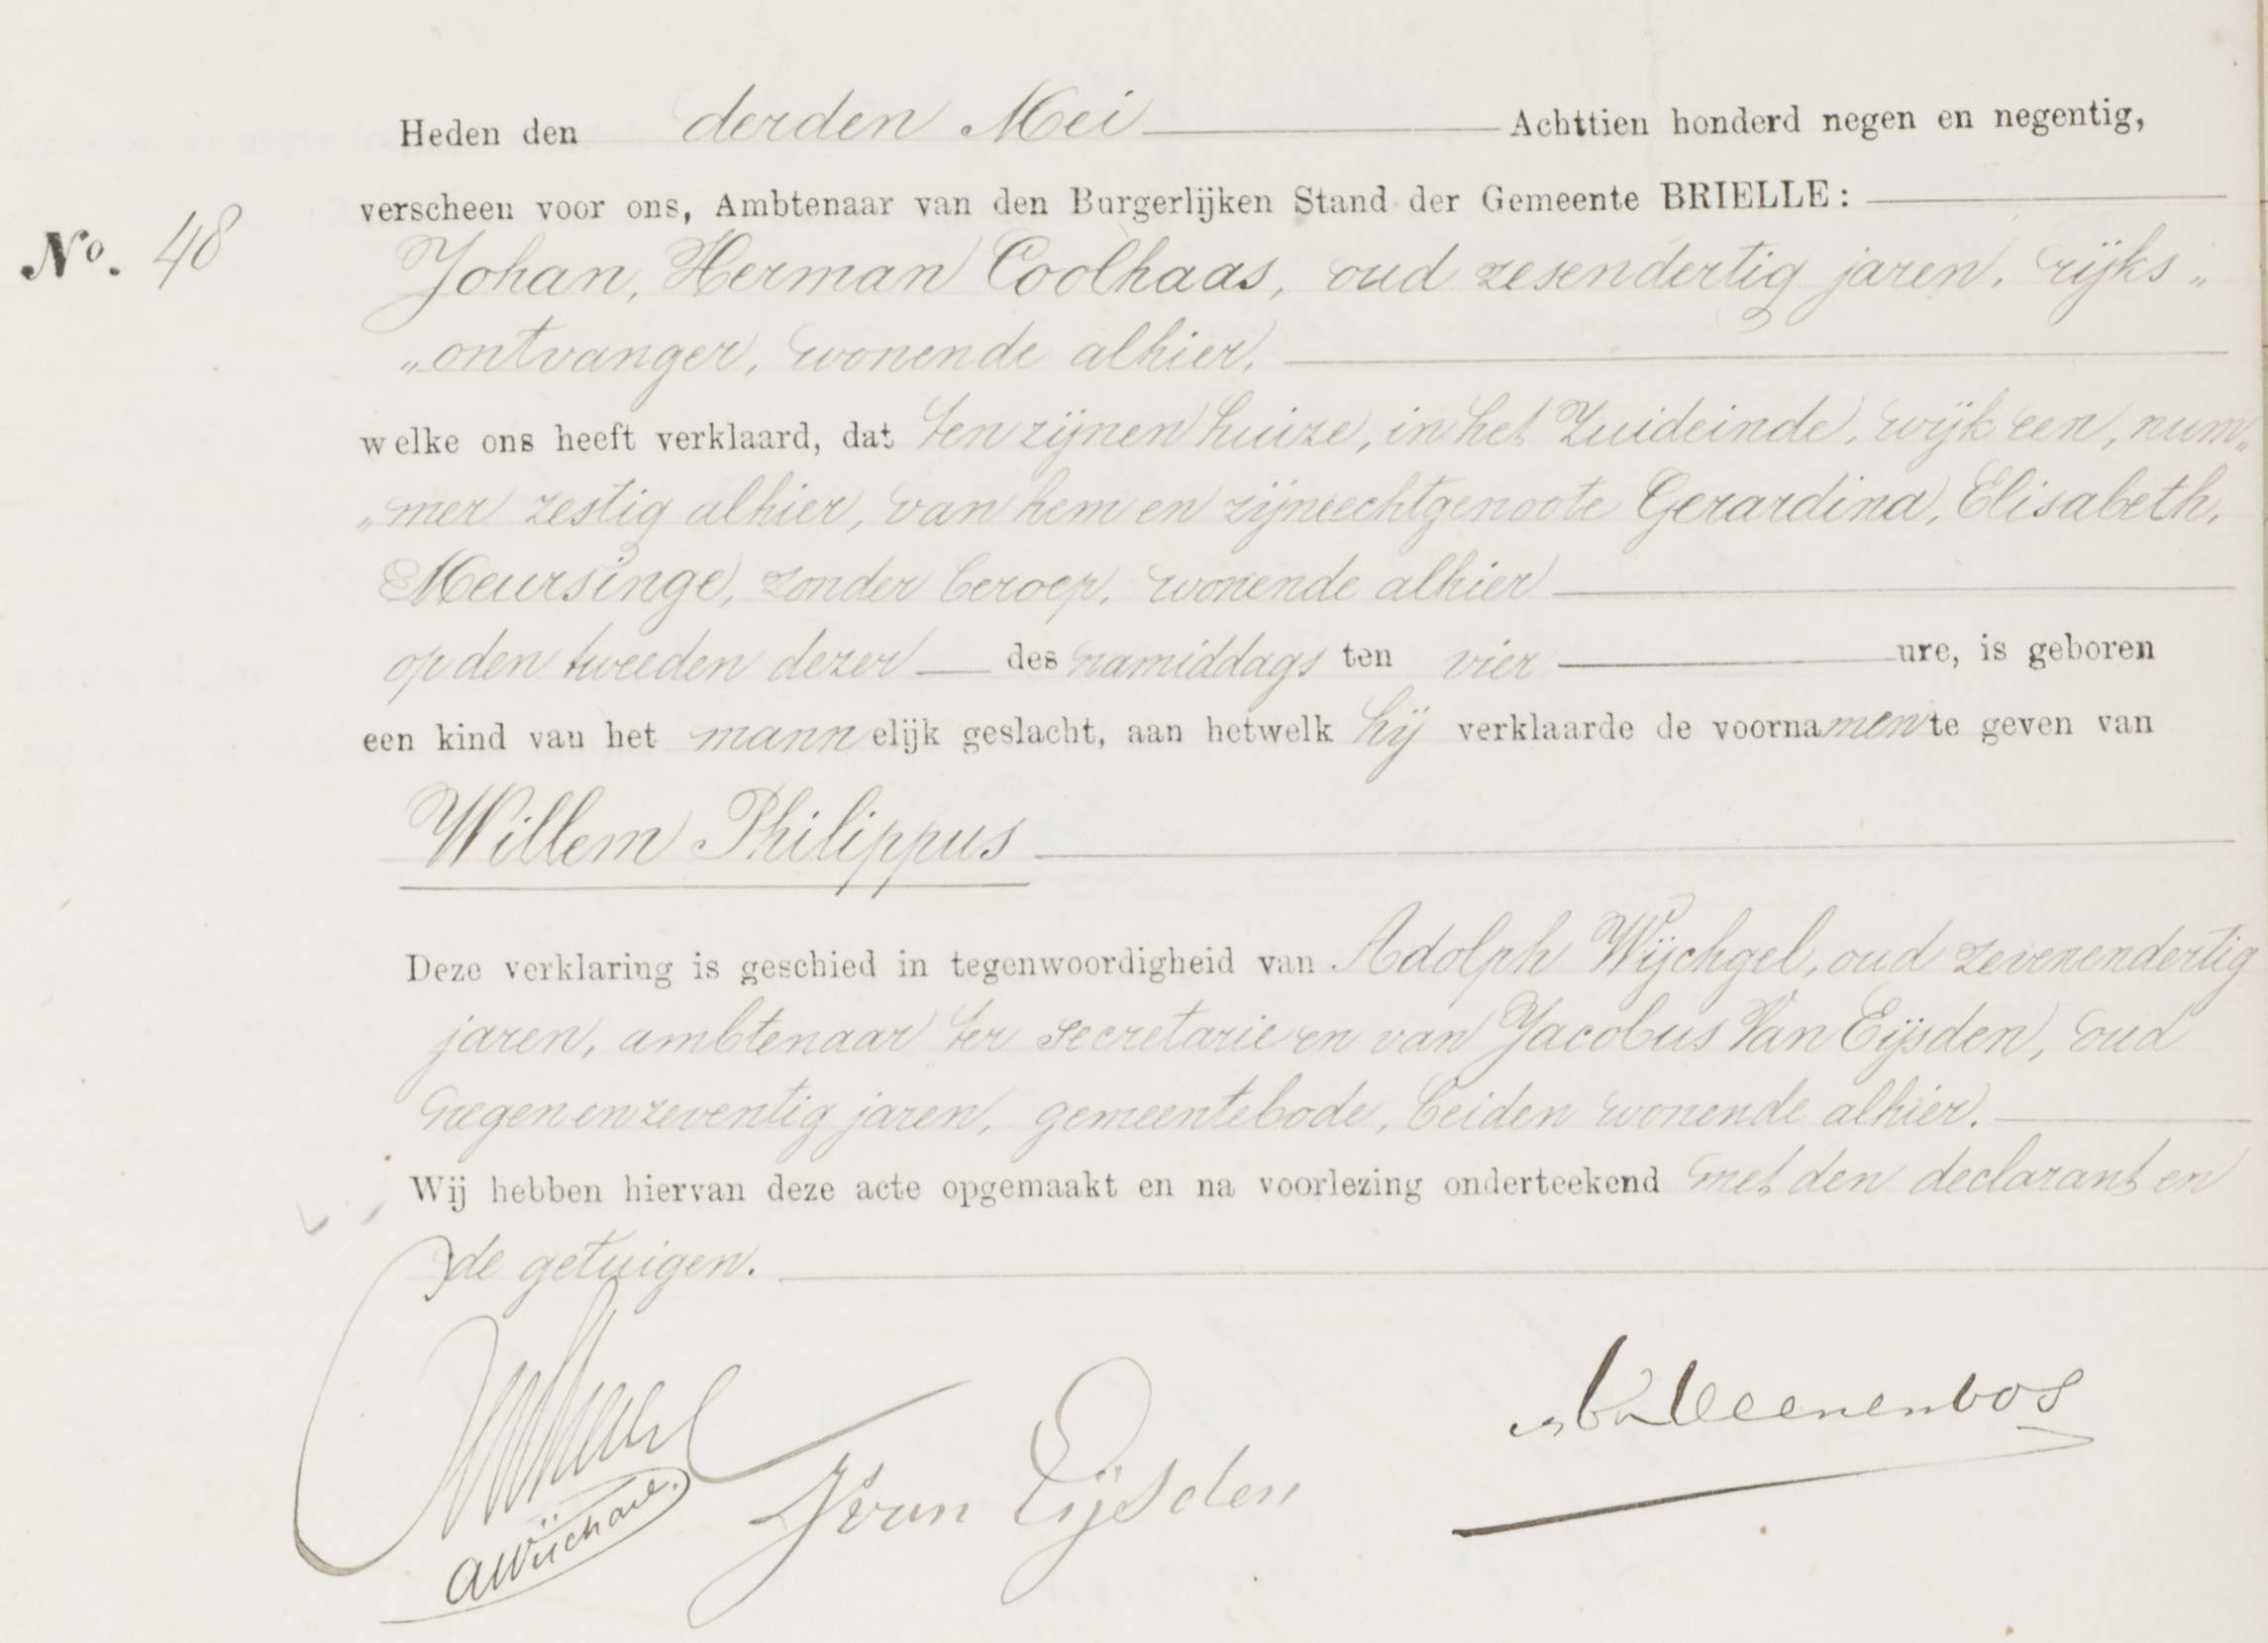 Heden den derden Mei Achttien honderd negen en negentig,
verscheen voor ons, Ambtenaar van den Burgerlijken Stand der Gemeente BRIELLE:
No. 48
Johan, Herman Coolhaas, oud zesendertig jaren, rijks„
„ontvanger, wonende alhier,
welke ons heeft verklaard, dat ten zijnen huize, in het Zuideinde, wijk een, num„
„mer zestig alhier, van hem en zijne echtgenoote Gerardina, Elisabeth,
Meursinge, zonder beroep, wonende alhier
op den tweeden dezer des namiddags ten vier ure, is geboren
een kind van het mannelijk geslacht, aan hetwelk hij verklaarde de voornamen te geven van
Willem Philippus
Deze verklaring is geschied in tegenwoordigheid van Adolph Wijchgel, oud zevenendertig
jaren, ambtenaar ter secretarie en van Jacobus Van Eijsden, oud
negenenzeventig jaren, gemeentebode, beiden wonende alhier.
Wij hebben hiervan deze acte opgemaakt en na voorlezing onderteekend met den declarant en
de getuigen.
J van Eijsden